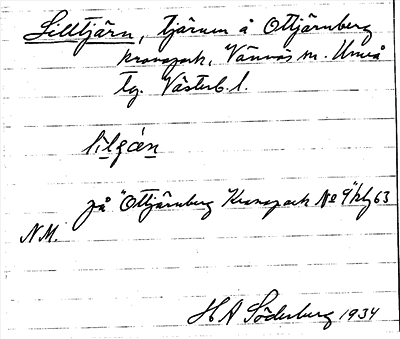 Lilltjärn, tjärnen å Ottjärnberg
kronopark, Vännäs sn. Umeå
tg. Västerb. l.
på "Ottjärnberg Kronopark No 9" bl 63
N.M.
H A Söderberg 1934